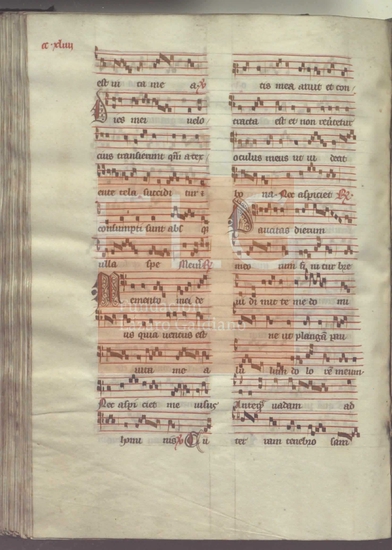 cc xliiij
est ui ta me a ℣
Dies mei uelo
cius transierunt quam a tex
ente tela succidi tur t
consumpti sunt abs q
ulla spe Memẽ ℟
Memento mei de
us quia uentus est
uita me a
Nec aspi ciet me uisus
homi nis ℣ Cu
tis mea aruit et con
tracta est et non reuertetur
oculus meus ut ui deat
bo na Nec aspiciet ℟
Paucitas dierum
meo rum fi ni tur bre
ui di mit te me do mi
ne ut plangam pau
lu lum do lo rem meum
Anteq̃ uadam ad
ter ram tenebro sam